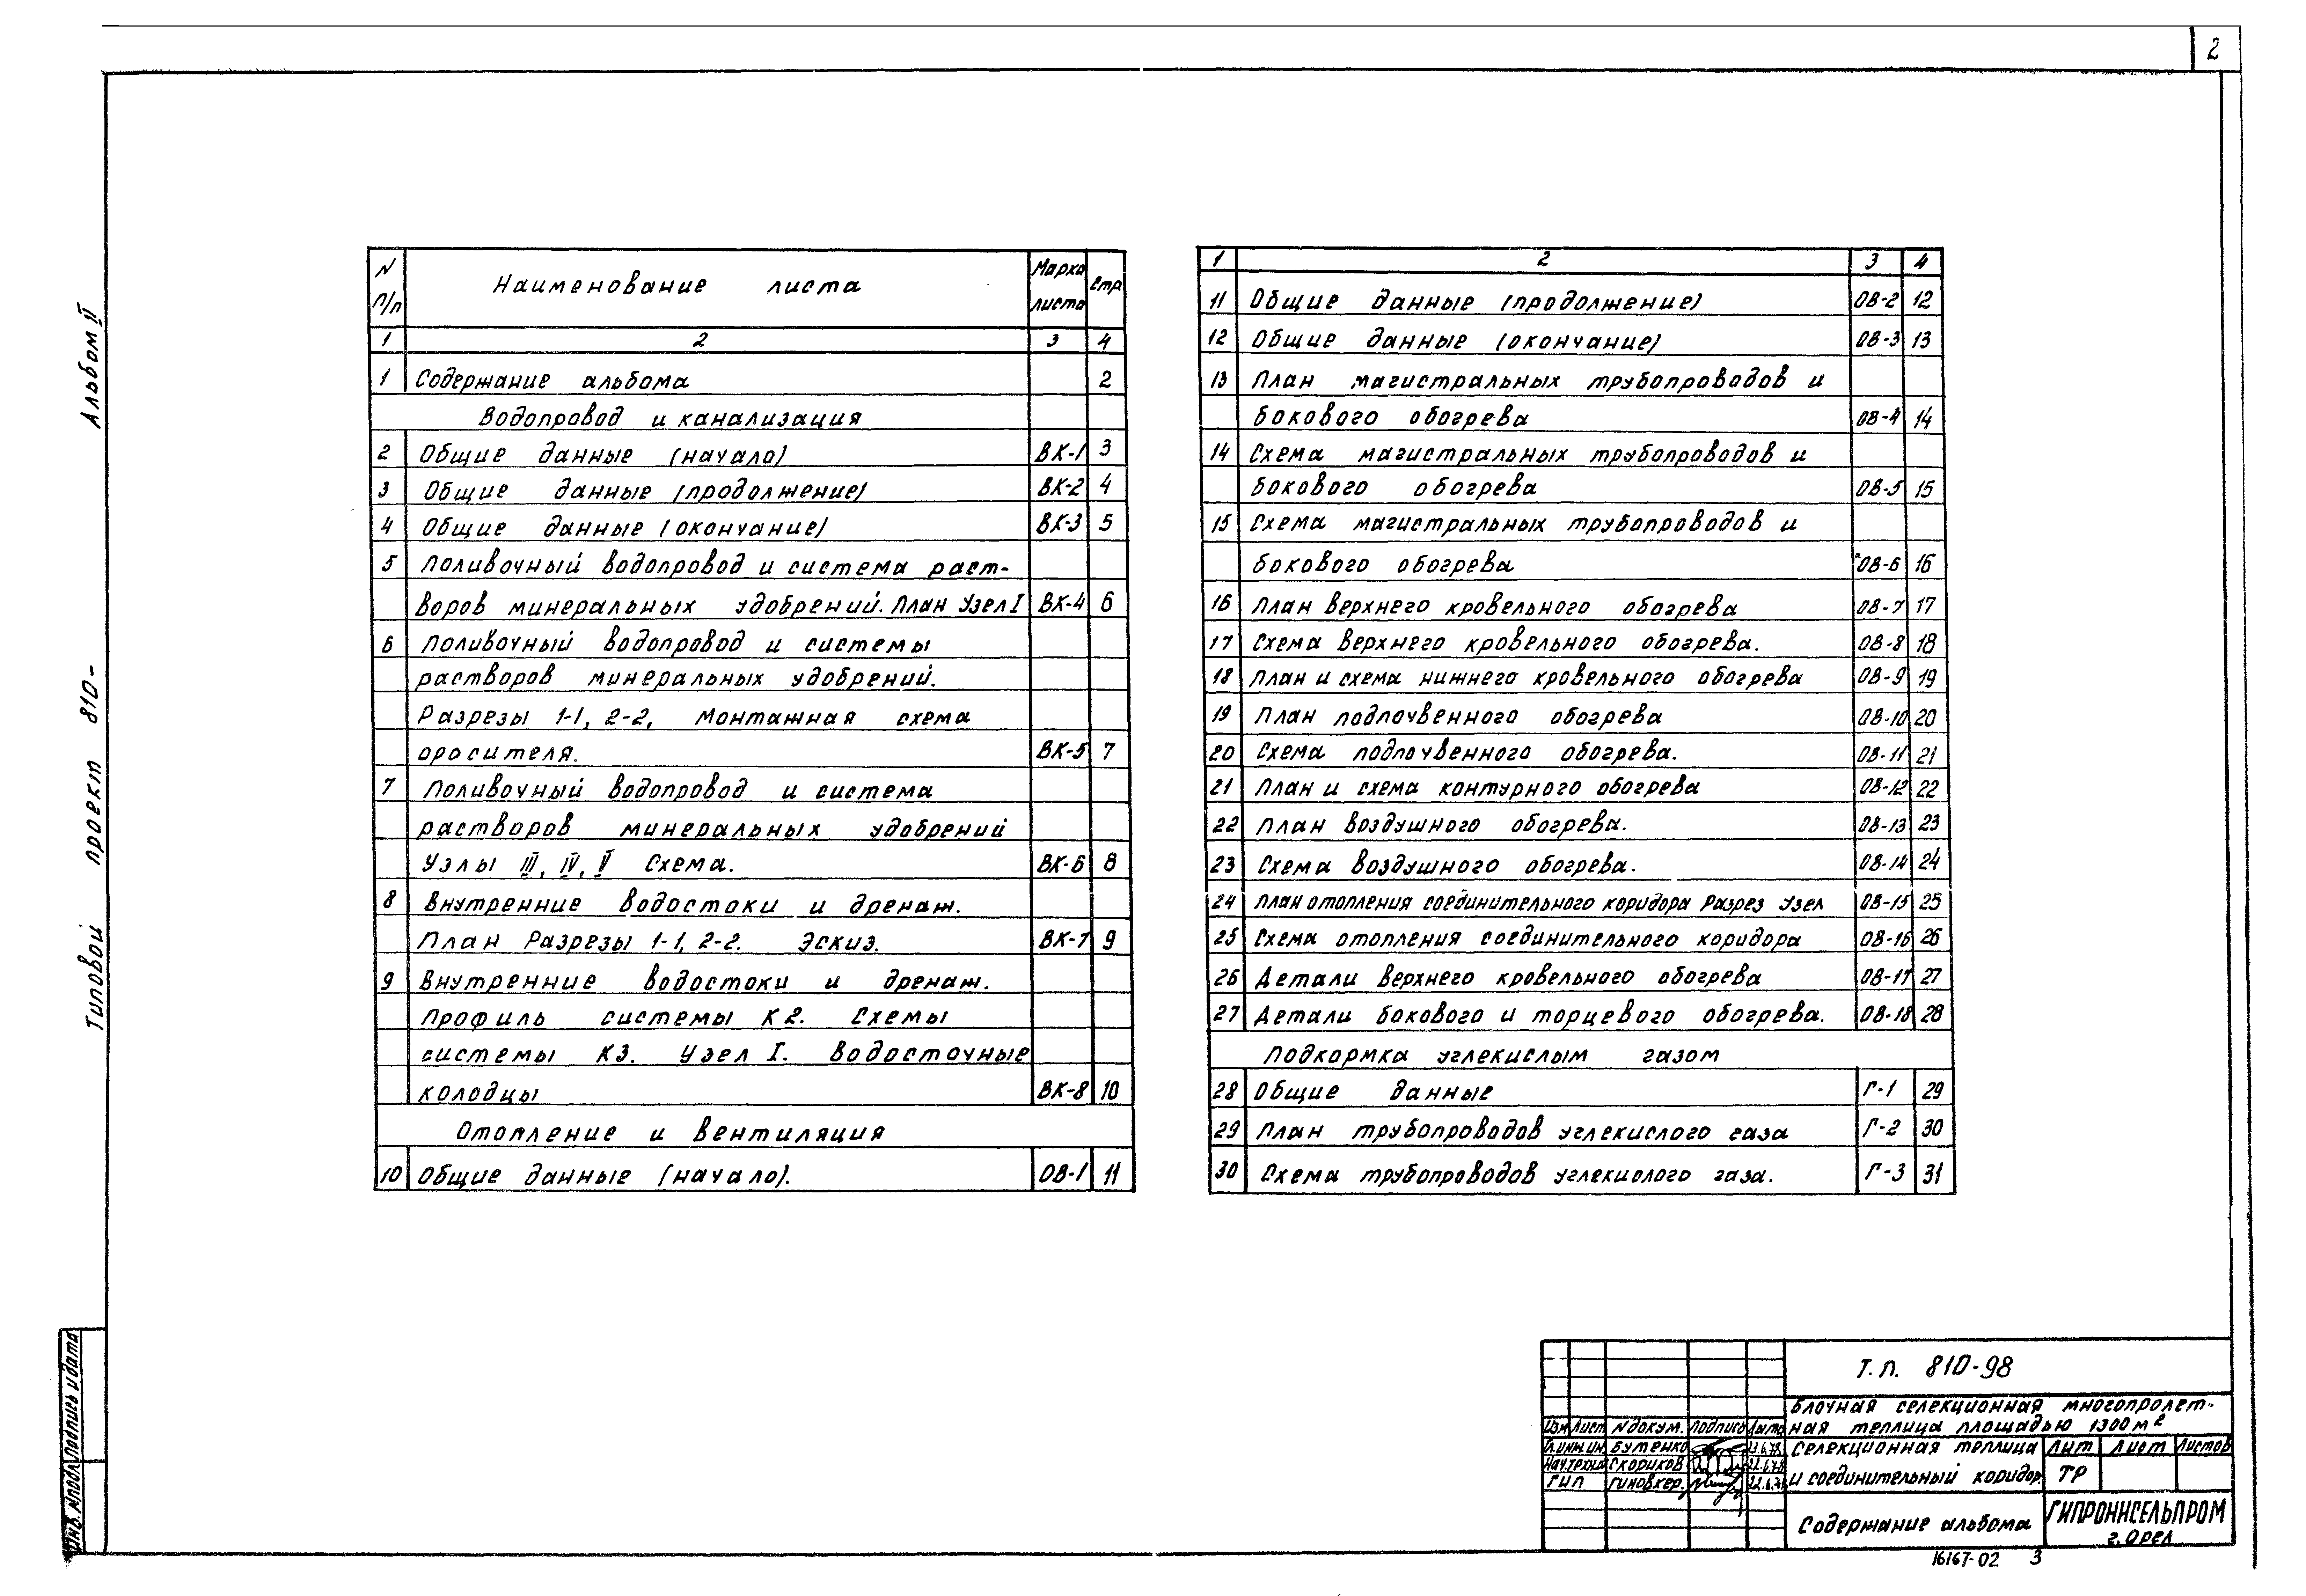 2
Альбом II
Типовой проект 810-
Инв. N подл Подпись и дата
N п/п Наименование листа Марка листа Стр
1 2 3 4
1 Содержание альбома 2
Водопровод и канализация
2 Общие данные (начало) ВК-1 3
3 Общие данные (продолжение) ВК-2 4
4 Общие данные (окончание) ВК-3 5
5 Поливочный водопровод и система раст-
воров минеральных удобрений. План Узел I ВК-4 6
6 Поливочный водопровод и системы
растворов минеральных удобрений.
Разрезы 1-1, 2-2, Монтажная схема
оросителя. ВК-5 7
7 Поливочный водопровод и система
растворов минеральных удобрений
Узлы III, IV, V Схема. ВК-6 8
8 Внутренние водостоки и дренаж.
План Разрезы 1-1, 2-2. Эскиз. ВК-7 9
9 Внутренние водостоки и дренаж.
Профиль системы К2. Схемы
системы К3. Узел I. Водосточные
колодцы ВК-8 10
Отопление и вентиляция
10 Общие данные (начало). ОВ-1 11
1 2 3 4
11 Общие данные (продолжение) ОВ-2 12
12 Общие данные (окончание) ОВ-3 13
13 План магистральных трубопроводов и
бокового обогрева ОВ-4 14
14 Схема магистральных трубопроводов и
бокового обогрева ОВ-5 15
15 Схема магистральных трубопроводов и
бокового обогрева ОВ-6 16
16 План верхнего кровельного обогрева ОВ-7 17
17 Схема верхнего кровельного обогрева. ОВ-8 18
18 План и схема нижнего кровельного обогрева ОВ-9 19
19 План подпочвенного обогрева ОВ-10 20
20 Схема подпочвенного обогрева. ОВ-11 21
21 План и схема контурного обогрева ОВ-12 22
22 План воздушного обогрева. ОВ-13 23
23 Схема воздушного обогрева. ОВ-14 24
24 План отопления соединительного коридора Разрез Узел ОВ-15 25
25 Схема отопления соединительного коридора ОВ-16 26
26 Детали верхнего кровельного обогрева ОВ-17 27
27 Детали бокового и торцевого обогрева. ОВ-18 28
Подкормка углекислым газом
28 Общие данные Г-1 29
29 План трубопроводов углекислого газа Г-2 30
30 Схема трубопроводов углекислого газа. Г-3 31
Т.п. 810-98
Блочная селекционная многопролет-
ная теплица площадью 1300 м²
Изм Лист N докум. Подпись Дата
Гл.инж.ин. Бутенко
Нач.техн Скориков
ГИП Гиновкер.
Селекционная теплица
и соединительный коридор.
Лит Лист Листов
ТР
Содержание альбома
ГИПРОНИСЕЛЬПРОМ
г. Орел
16167-02 3